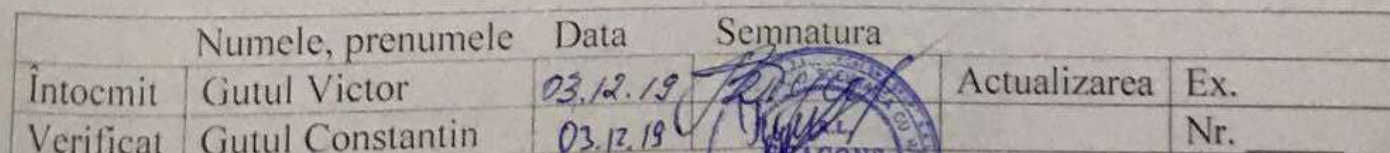 Numele, prenumele Data Semnatura
Întocmit Gutul Victor 03.12.19 Actualizarea Ex.
Verificat Gutul Constantin 03.12.19 Nr.